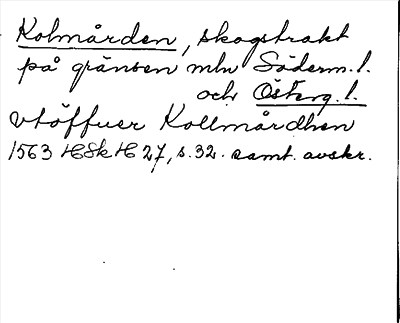 Kolmården, skogstrakt
på gränsen mln Söderm. l.
och Österg. l.
vtöffuer Kollmårdhen
1563 HSk H 27, s. 32. samt. avskr.